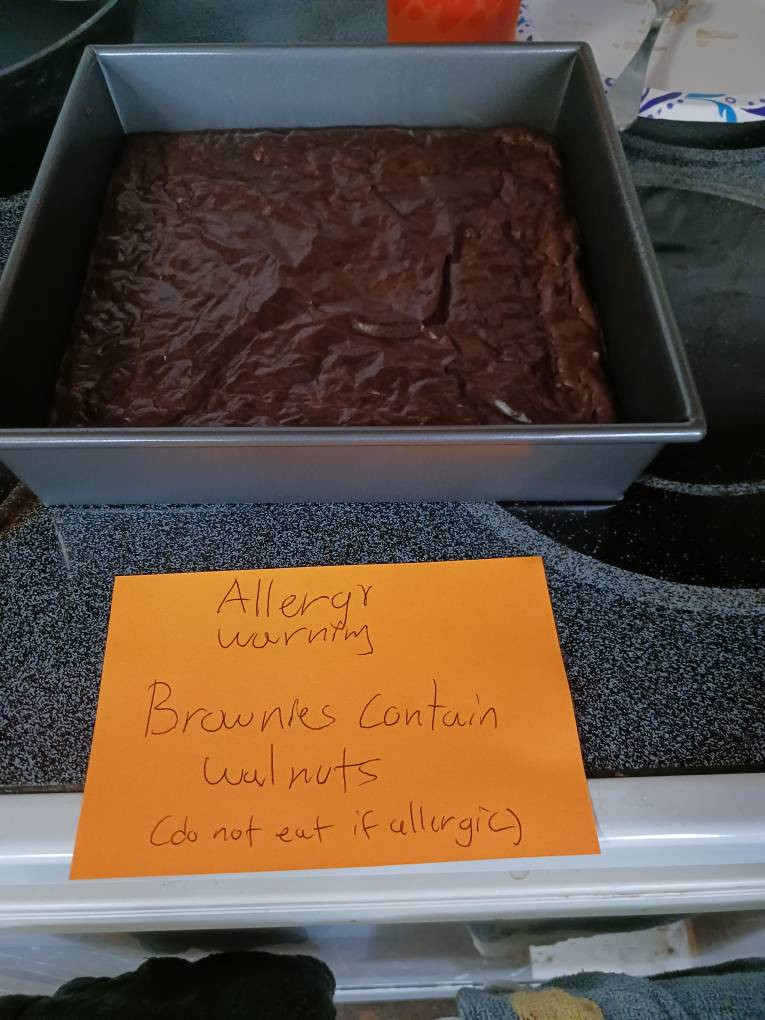 Allergy
warning
Brownies contain
walnuts
(do not eat if allergic)